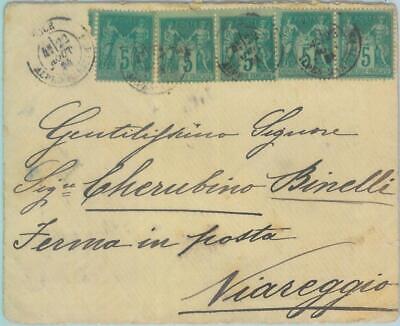 5 5 5 5 5
AOUT
Gentilissimo Signore
Sig.re Cherubino Binelli
Ferma in posta
Viareggio